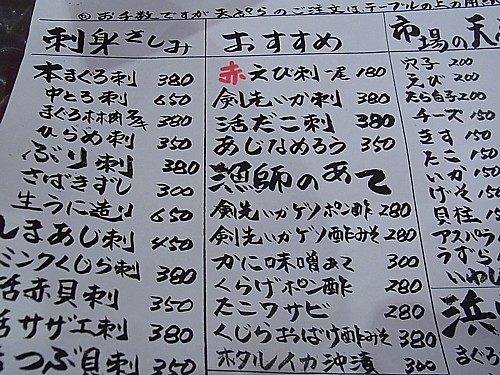 ①お手数ですが天ぷらのご注文はテーブルの上の用紙
刺身さしみ
本まぐろ刺 380
中とろ刺 650
まぐろホホ肉 380
ひらめ刺 350
ぶり刺 380
さばきずし 300
生うに造り 650
しまあじ刺 450
ミンクくじら刺 380
活赤貝刺 350
活サザエ刺 380
活つぶ貝刺 350
おすすめ
赤えび刺一尾 180
剣先いか刺 380
活だこ刺 380
あじなめろう 350
漁師のあて
剣先いかゲソポン酢 280
剣先いかゲソ酢みそ 280
かに味噌あて 300
くらげポン酢 280
たこワサビ 280
くじらおばけ酢みそ 380
ホタルイカ沖漬 300
市場の天
穴子 200
えび 200
たら白子 200
チーズ 150
きす 150
たこ 150
いか 150
げそ 150
貝柱 150
アスパラ
うずら
いわし
浜
まぐろ